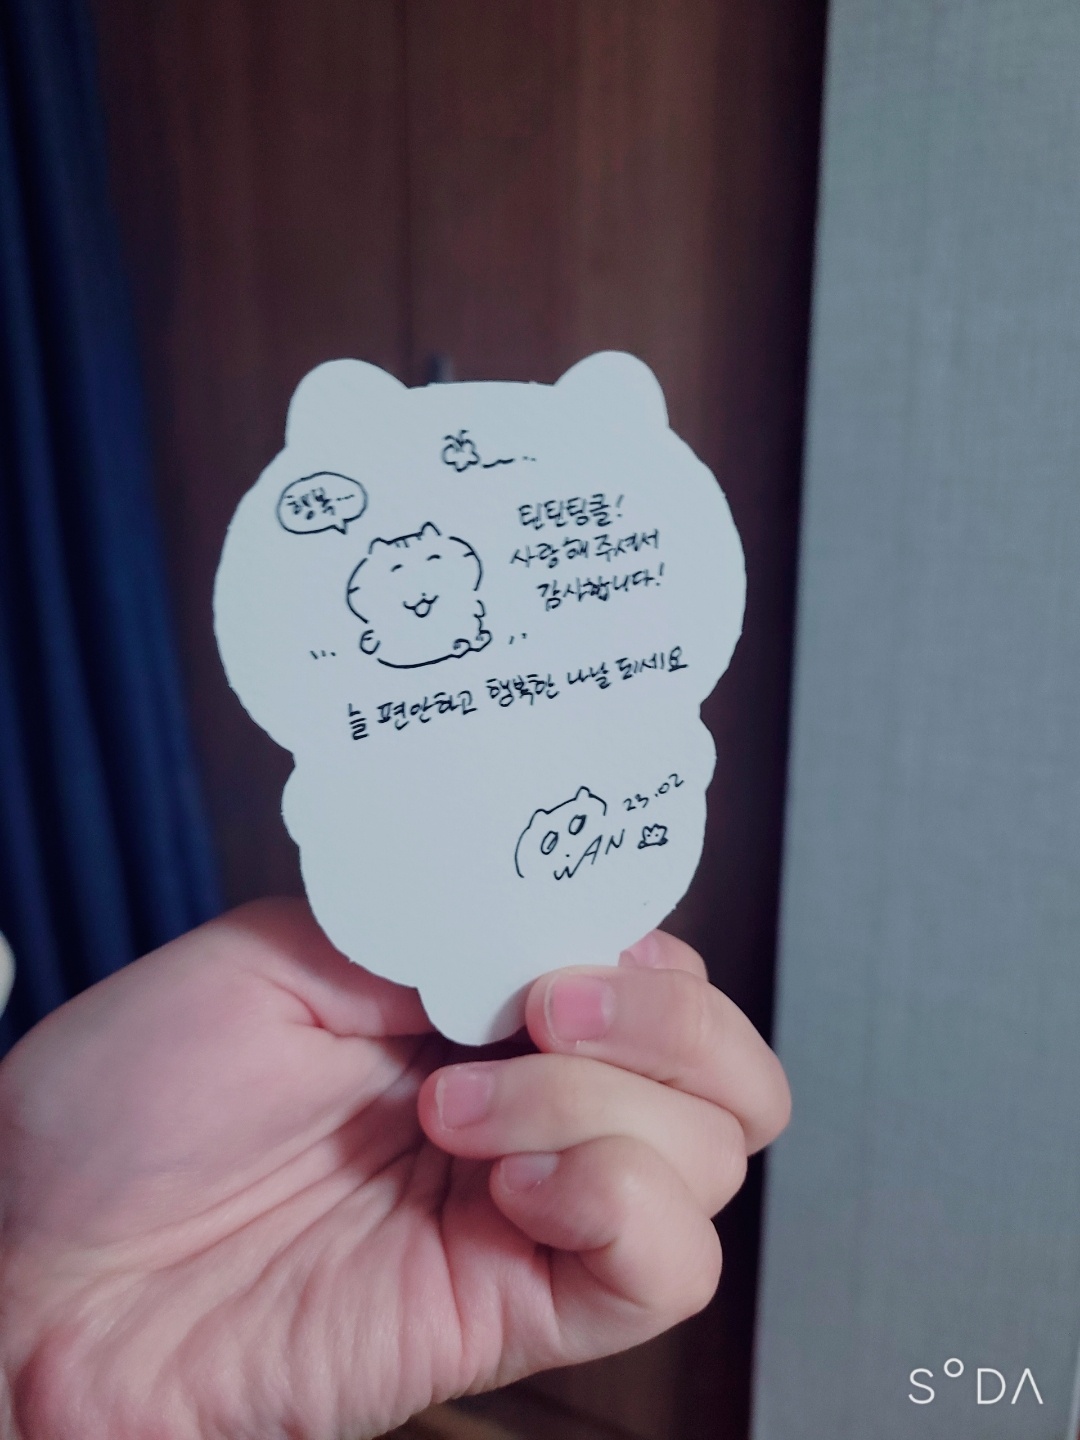 행복...
틴틴팅클!
사랑해 주셔서
감사합니다!
늘 편안하고 행복한 나날 되세요
23.02
SODA